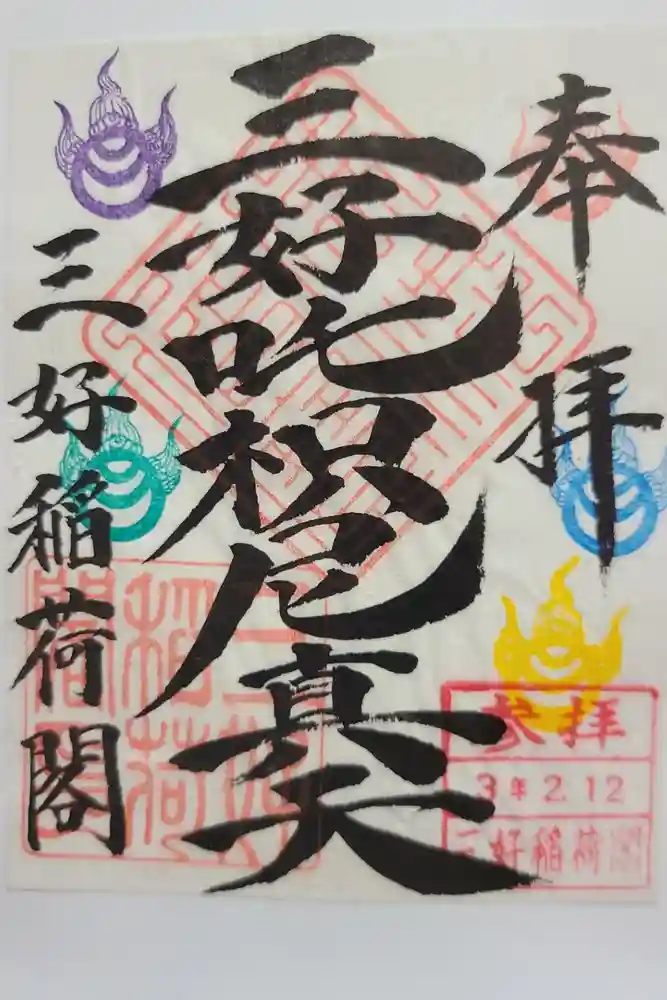 奉拝
三好吒枳尼真天
三好稲荷閣
参拝
3年2.12
三好稲荷閣